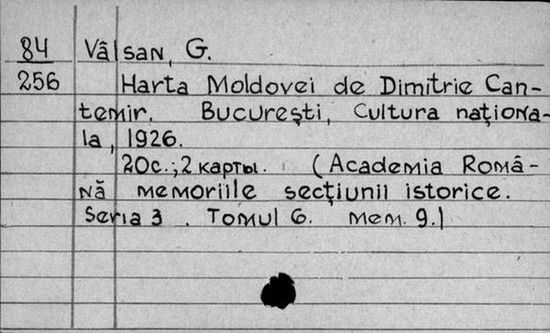 84 Vâlsan, G.
256 Harta Moldovei de Dimitrie Can-
temir. Bucureşti, Cultura naţiona-
la, 1926.
20с.; 2 карты. (Academia Romȃ-
nă memoriile secţiunii istorice.
Seria 3. Tomul 6. mem. 9.)